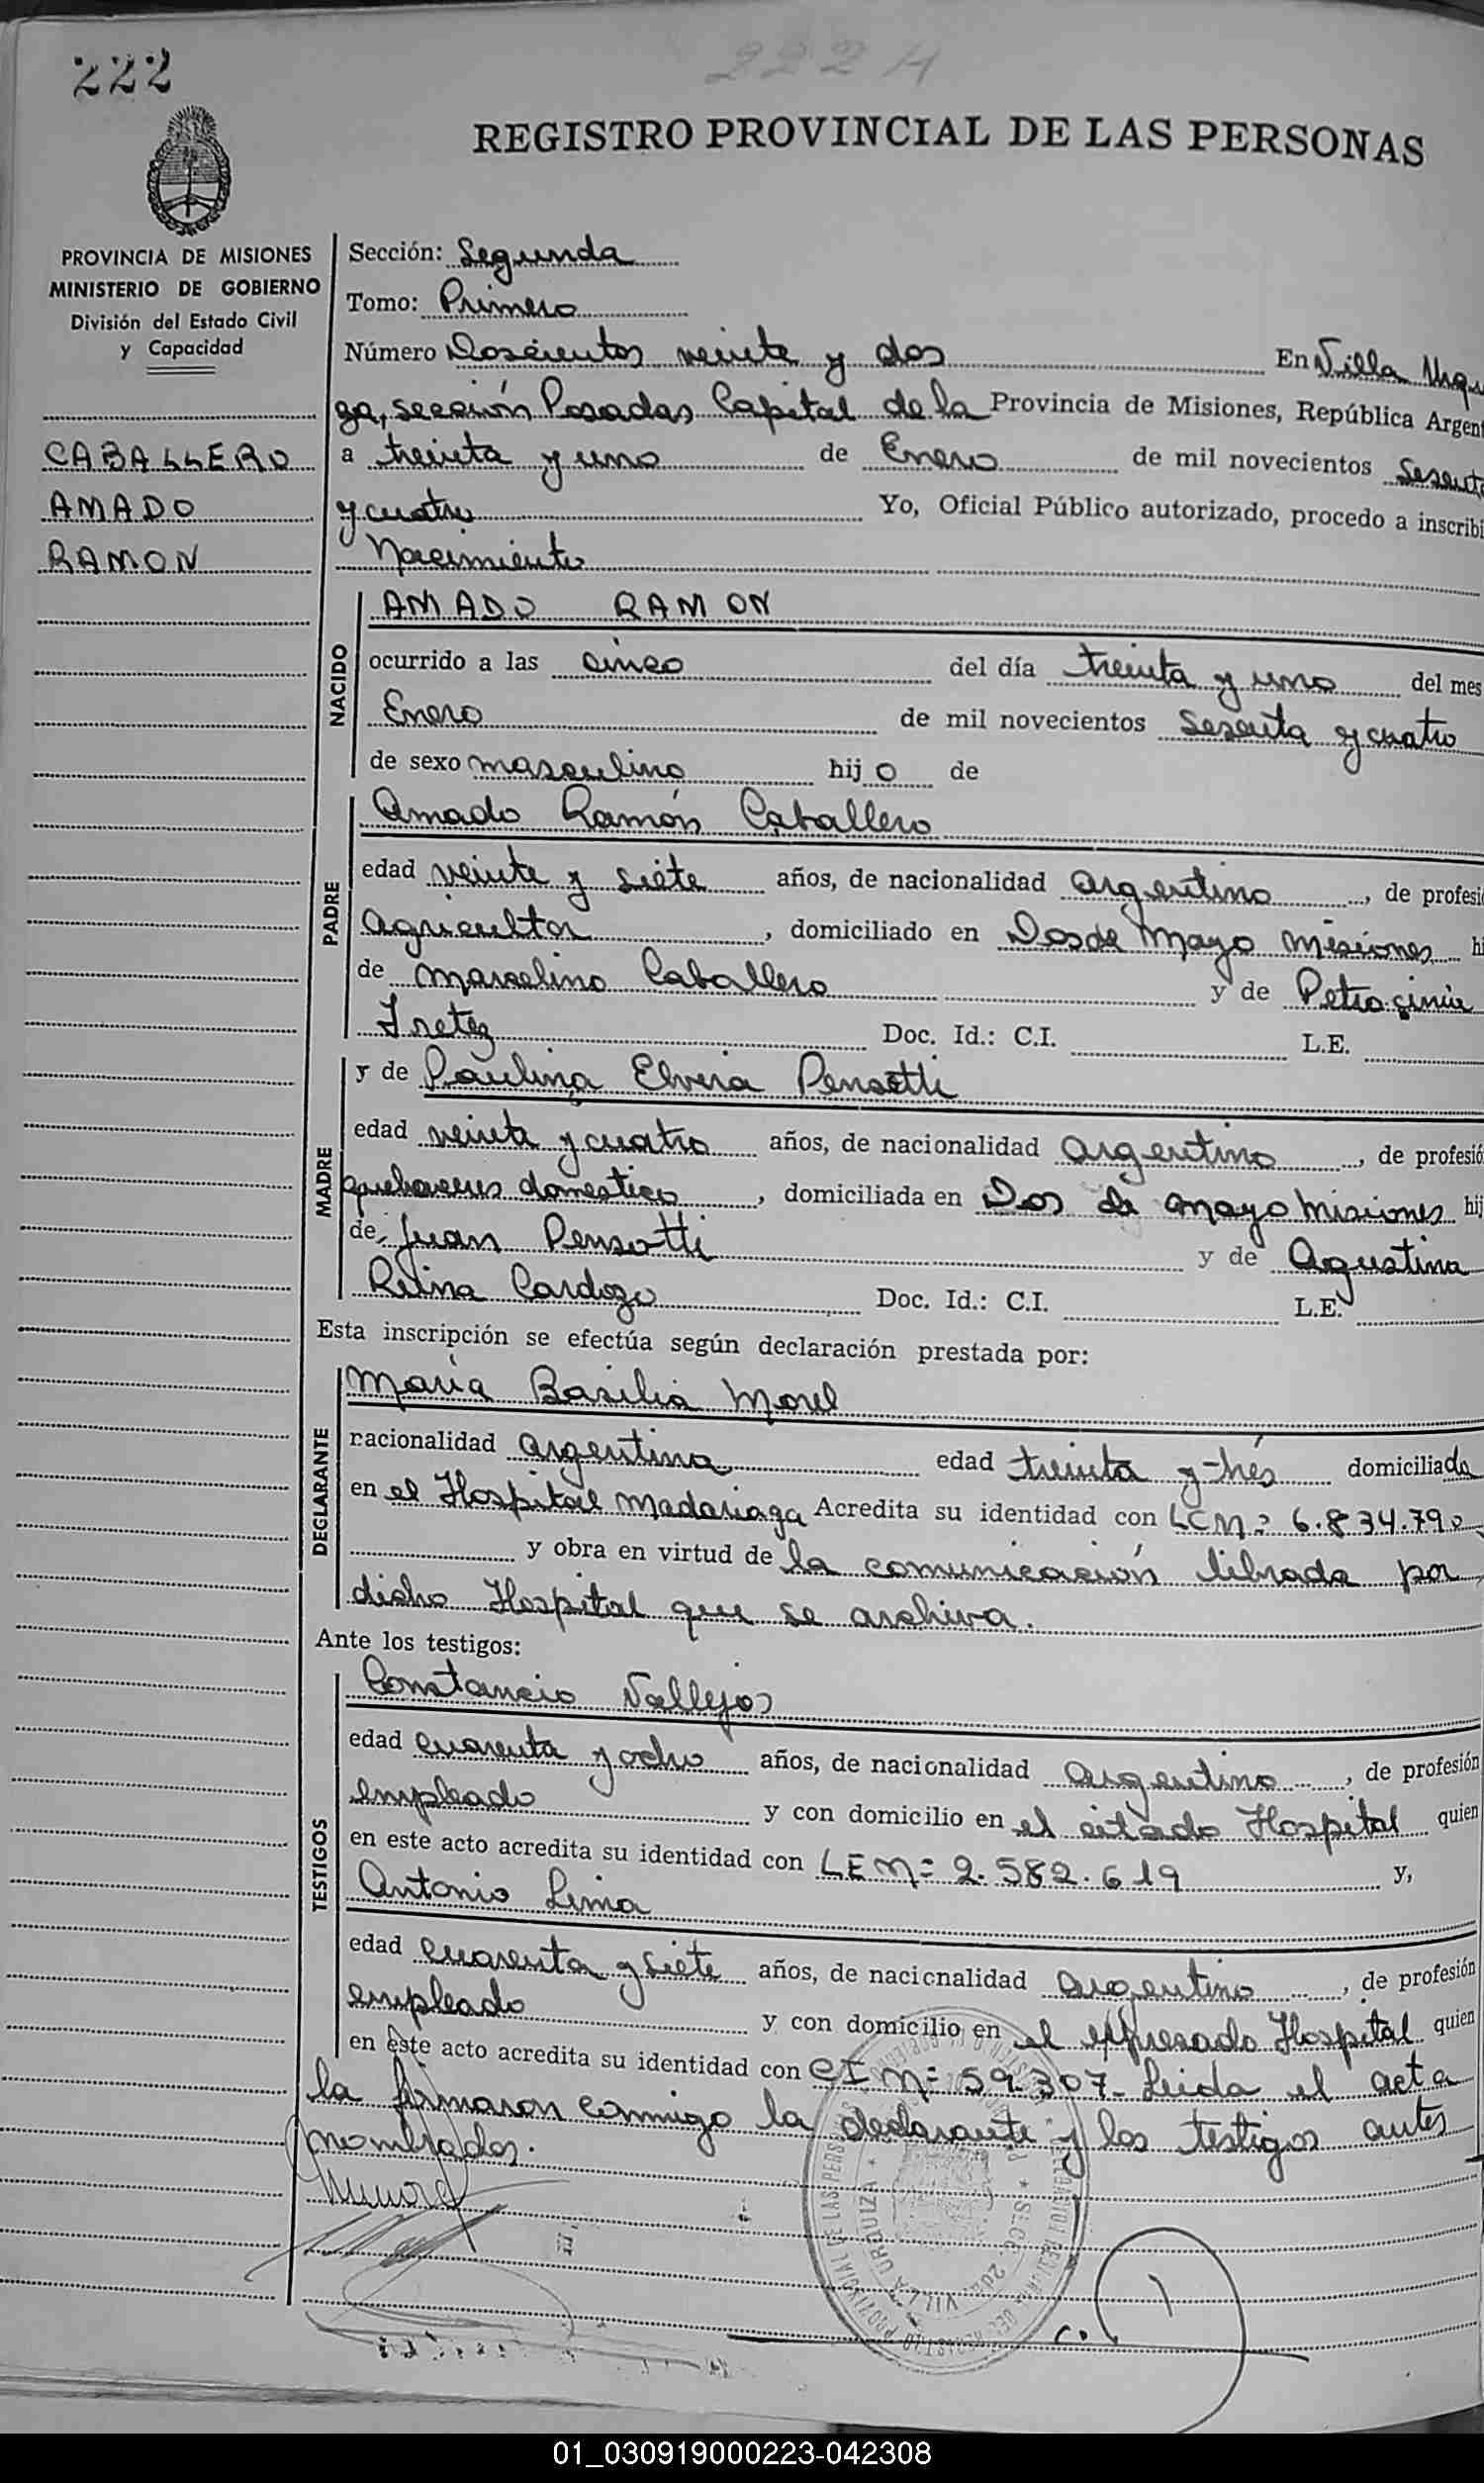 222
222 H
REGISTRO PROVINCIAL DE LAS PERSONAS
PROVINCIA DE MISIONES
MINISTERIO DE GOBIERNO
División del Estado Civil
y Capacidad
CABALLERO
AMADO
RAMON
Sección: Segunda
Tomo: Primero
Número Doscientos veinte y dos En Villa Urqui
za, sección Posadas Capital de la Provincia de Misiones, República Argent
a treinta y uno de Enero de mil novecientos Sesenta
y cuatro Yo, Oficial Público autorizado, procedo a inscribi
Nacimiento
NACIDO
AMADO RAMON
ocurrido a las cinco del día treinta y uno del mes
Enero de mil novecientos Sesenta y cuatro
de sexo masculino hij o de
PADRE
Amado Ramón Caballero
edad veinte y siete años, de nacionalidad argentino, de profesi
agricultor, domiciliado en Dos de Mayo Misiones hi
de Marcelino Caballero y de
Doc. Id.: C.I. L.E.
MADRE
y de Paulina Elvira Pensotti
edad veinte y cuatro años, de nacionalidad argentino, de profesió
quehaceres domestico, domiciliada en Dos de Mayo Misiones hij
de Juan Pensotti y de Agustina
Reina Cardozo Doc. Id.: C.I. L.E.
Esta inscripción se efectúa según declaración prestada por:
DECLARANTE
María Basilia Morel
nacionalidad argentina edad treinta y trés domiciliada
en el Hospital Madariaga Acredita su identidad con LC Nº 6.834.790
y obra en virtud de la comunicación librada por
dicho Hospital que se archiva.
Ante los testigos:
TESTIGOS
Constancio Vallejos
edad cuarenta y ocho años, de nacionalidad argentino, de profesión
empleado y con domicilio en el citado Hospital quien
en este acto acredita su identidad con LE Nº 2.582.619 y,
Antonio Lima
edad cuarenta y siete años, de nacicnalidad argentino, de profesión
empleado y con domicilio en el expresado Hospital quien
en este acto acredita su identidad con CI Nº 59.307- Leida el acta
la firmaron conmigo la declarante y los testigos antes
nombrados.
VILLA URQUIZA
01_030919000223-042308